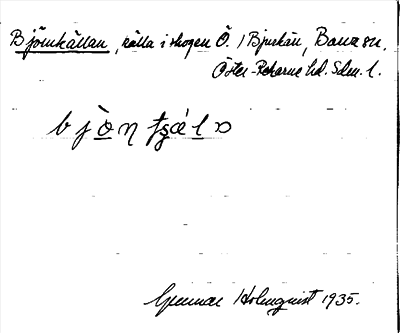 Björnkällan, källa i skogen Ö. / Bjurkärr, Barva sn.
Öster-Rekarne hd. Sdm. l.
Gunnar Holmquist 1935.